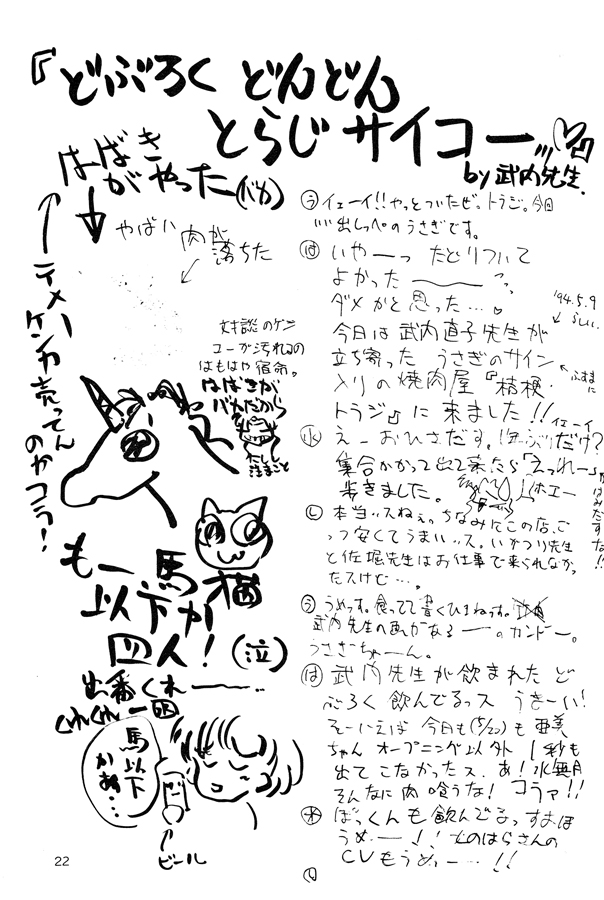 『どぶろく どんどん
とらじ サイコーッ♡』
by 武内先生.
はばき
がやったー(バカ)
やばい 肉が
落ちた
テメー
ケンカ売ってん
のかコラ!
対談のゲン
コーが汚れるの
はもはや宿命。
はばきが
バカだから
もー、馬 猫
以下か
四人!(泣)
出番くれーーー
くれくれ
馬
以下
かぁ…
ビール
う イェーイ!!やっとついたぜ。トラジ。今日
出しっぺのうさぎです。
は いやーっ たどりついて
よかったーーっ
ダメかと思った…。
'94.5.9
らしい
今日は武内直子先生が
立ち寄った うさぎのサイン
ふすまに
入りの焼肉屋『桔梗・
トラジ』に来ました!!イェーイ
水 えー おひさだす。1年ぶりだけ?
集合かかって出て来たら「えっれー」
歩きました。
ホエー
はみだすな!!
し 本当ッスねぇっ。ちなみにこの店、ご
っつ安くてうまいッス。いかつり先生
と佐堀先生はお仕事で来られなかっ
たスけど…。
う うめっす。食ってて書くひまねっす。
武内先生のあかがあるーーの。カンドー。
うさぎちゃーん。
は 武内先生が飲まれた ど
ぶろく 飲んでるッス うきーい!
そーいえば 今日も(5/22)も 亜美
ちゃん オープニング以外 1秒も
出てこなかったス。あ!水無月
そんなに肉喰うな! コラァ!!
水 ぼっくんも飲んでるっす まほ
うめーー!! もちはらさんの
CVもうめっー…!!
し
22